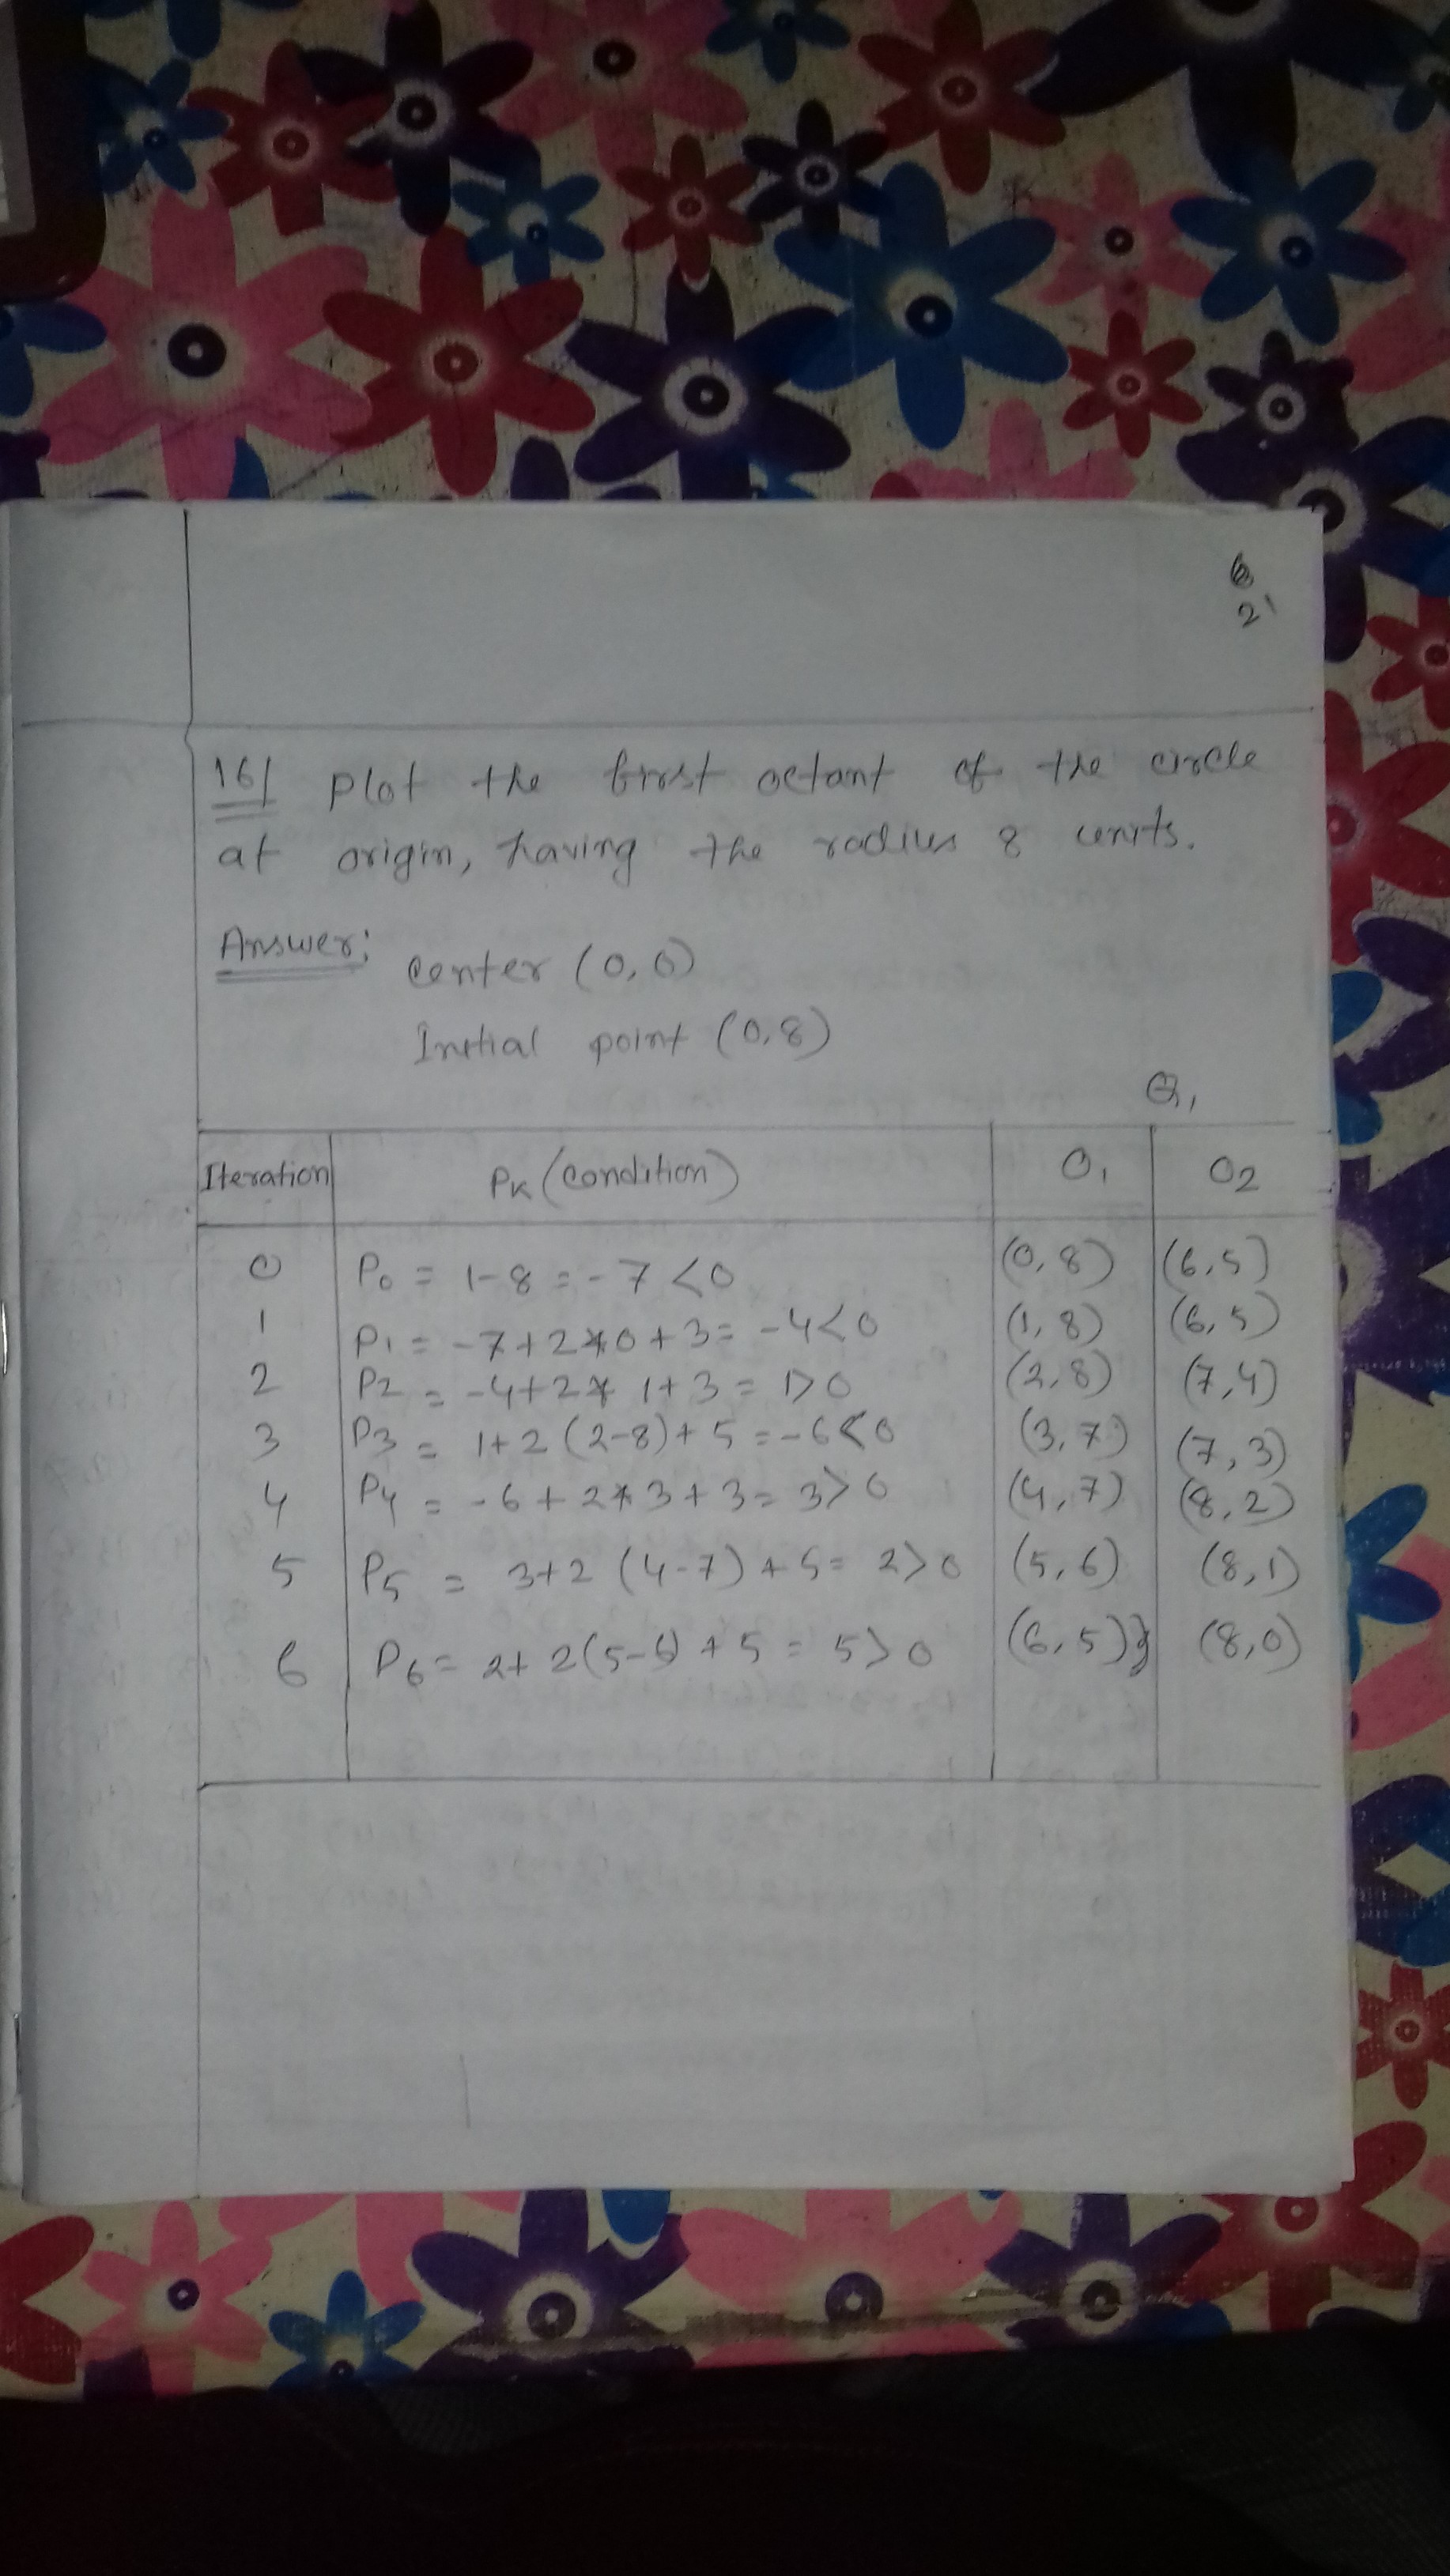 6
2
16/ Plot the first octant of the circle
at origin, having the radius 8 units.
Answer:
center (0,0)
Initial point (0,8)
Q1
Iteration Pk (condition) O1 O2
0 P0 = 1-8 = -7 <0 (0,8) (6,5)
1 P1 = -7+2*0+3= -4<0 (1,8) (6,5)
2 P2 = -4+2* 1+3 = 1>0 (2,8) (7,4)
3 P3 = 1+2 (2-8)+5 = -6<0 (3,7) (7,3)
4 P4 = -6+2*3+3= 3>0 (4,7) (8,2)
5 P5 = 3+2 (4-7)+5= 2>0 (5,6) (8,1)
6 P6= 2+ 2(5-6)+5 = 5>0 (6,5)} (8,0)